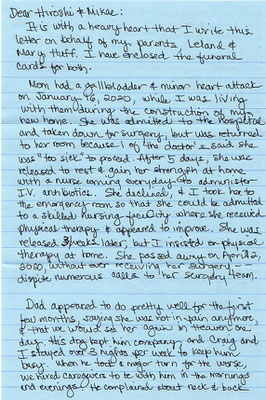 Dear Hiroshi & Mikae:
It is with a heavy heart that I write this
letter on behalf of my parents, Leland &
Mary Huff. I have enclosed the funeral
cards for both.
Mom had a gallbladder & minor heart attack
on January 16, 2020, while I was living
with them during the construction of my
new home. She was admitted to the hospital
and taken down for surgery, but was returned
to her room because 1 of the doctor's said she
was "too sick" to proceed. After 5 days, she was
released to rest & gain her strength at home
with a nurse coming everyday to administer
I.V. antibiotics. She declined, & I took her to
the emergency room so that she could be admitted
to a skilled nursing facility where she received
physical therapy & appeared to improve. She was
released 3 weeks later, but I insisted on physical
therapy at home. She passed away on April 2,
2020, without ever receiving her surgery
dispite numerous calls to her surgery team.
Dad appeared to do pretty well for the first
few months, saying she was not in pain anymore,
& that we would see her again in Heaven one
day. His dog kept him company, and Craig and
I stayed over 3 nights per week to keep him
busy. When he took a major turn for the worse,
we hired caregivers to be with him in the mornings
and evenings. He complained about neck & back